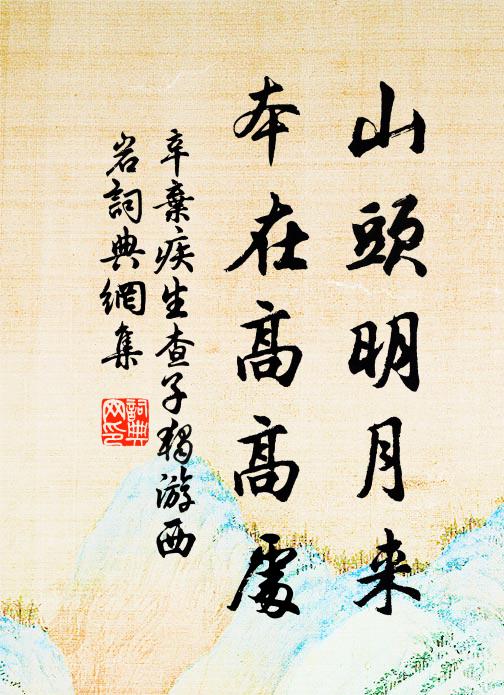 山頭明月来
本在高高處
辛棄疾生查子獨游西
岩詞典網集
詞典网印